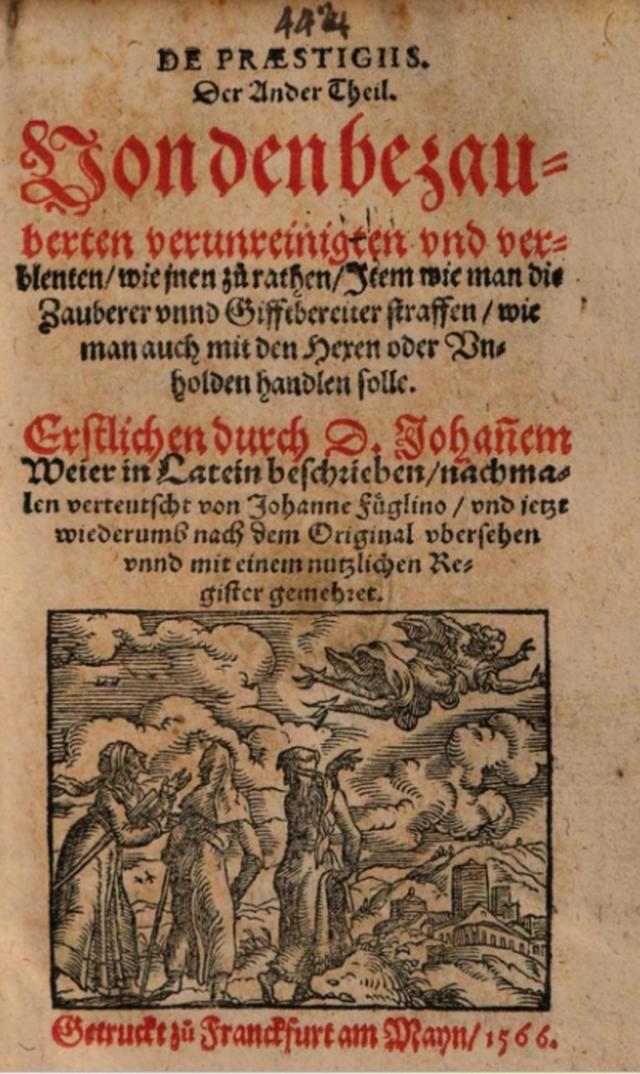 44
DE PRÆSTIGIIS.
Der Ander Theil.
Von den bezau-
berten verunreinigten vnd ver-
blenten / wie jnen zů rathen / Item wie man die
Zauberer vnnd Gifftbereiter straffen / wie
man auch mit den Hexen oder Vn-
holden handlen solle.
Erstlichen durch D. Johañem
Weier in Latein beschrieben / nachma-
len verteutscht von Johanne Füglino / vnd jetzt
wiederumb nach dem Original vbersehen
vnnd mit einem nutzlichen Re-
gister gemehret.
Getruckt zů Franckfurt am Mayn / 1566.